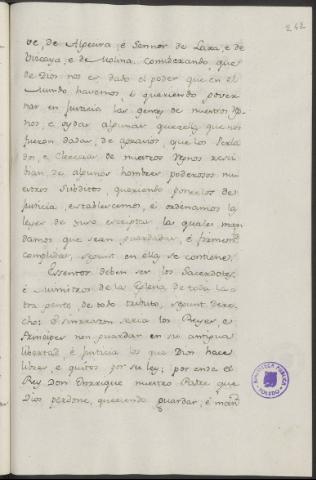 242
ve, de Algecira, é Sennor de Lara, e de
Vizcaya, e de Molina. Considerando que
de Dios nos es dado el poder que en el
Mundo havemos, é queriendo gover
nar en Justicia las gentes de nuestros Rey
nos, e oydas algunas querellas que nos
fueron dadas, de agravios, que los Perla
dos, e Clerecias de nuestros Regnos resci
bian de algunos hombres poderosos nu
estros Subditos, queriendo ponerlos de
Justicia, establecemos, é ordenamos las
leyes de yuso escriptas, las quales man
damos que sean guardadas, é firmem.te
complidas, segunt en ellas se contiene.
Essentos deben ser los Sacerdotes,
é Ministros de la Eglesia, de toda la o
tra gente, de todo tributo, segunt Dere
cho: é sinrazon seria los Reyes, e
Principes non guardar en su antigua
libertad, é Justicia los que Dios hace
libres, e quitos por su ley; por ende el
Rey Don Enrrique nuestro Padre que
Dios perdone, queriendo guardar, é mand
BIBLIOTECA PÚBLICA
TOLEDO